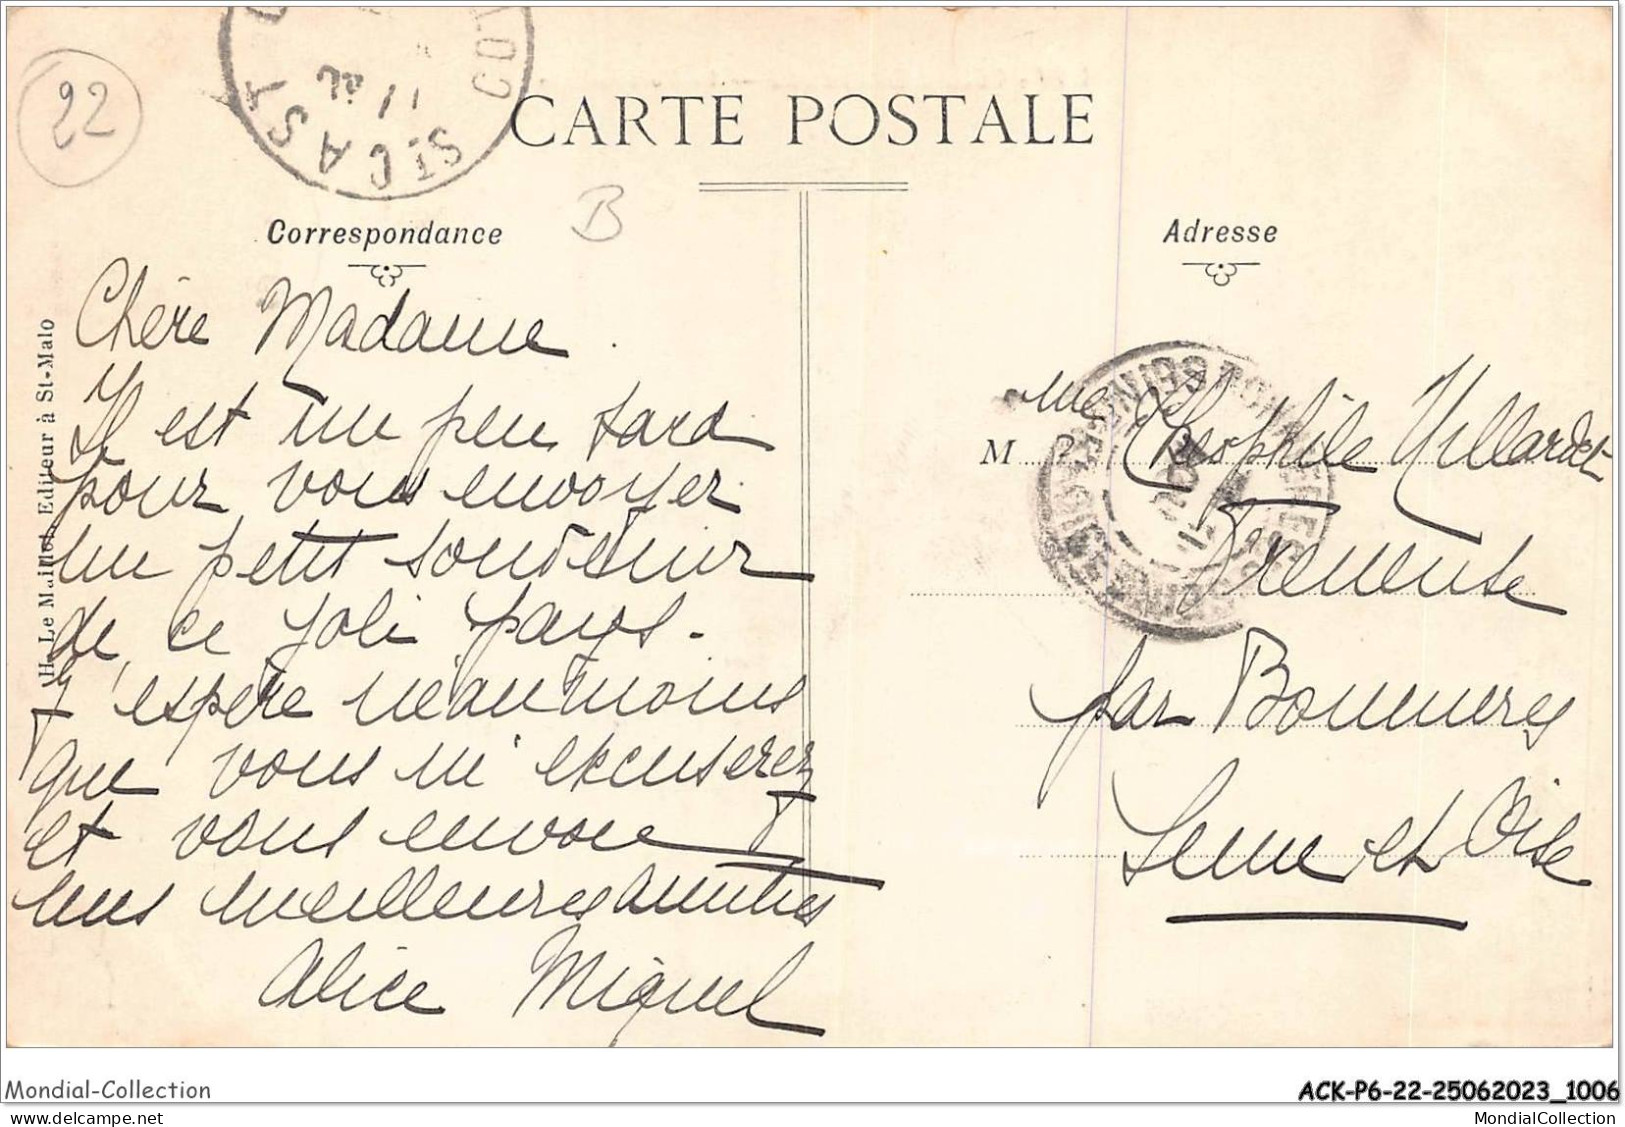 22
ST CAST
CARTE POSTALE
B
Correspondance
Adresse
H. Le Maillot, Editeur à St-Malo
Chère Madame.
Il est un peu tard
pour vous envoyer
un petit souvenir
de ce joli pays.
J'espère néanmoins
que vous m'excuserez
et vous envoie
mes meilleures amitiés
Alice Miquel
M me Théophile Villardet
par
Seine et Oise
Mondial-Collection
ACK-P6-22-25062023_1006
MondialCollection